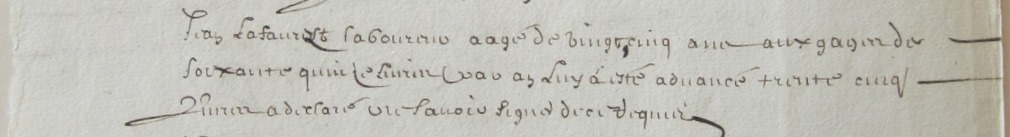 Jean Lafaurest laboureur aagé de vingt cinq ans aux gages de
soixante quinze livres par an Luy a esté advancé trente cinq
livres a declaré ne scavoir signer de ce requis